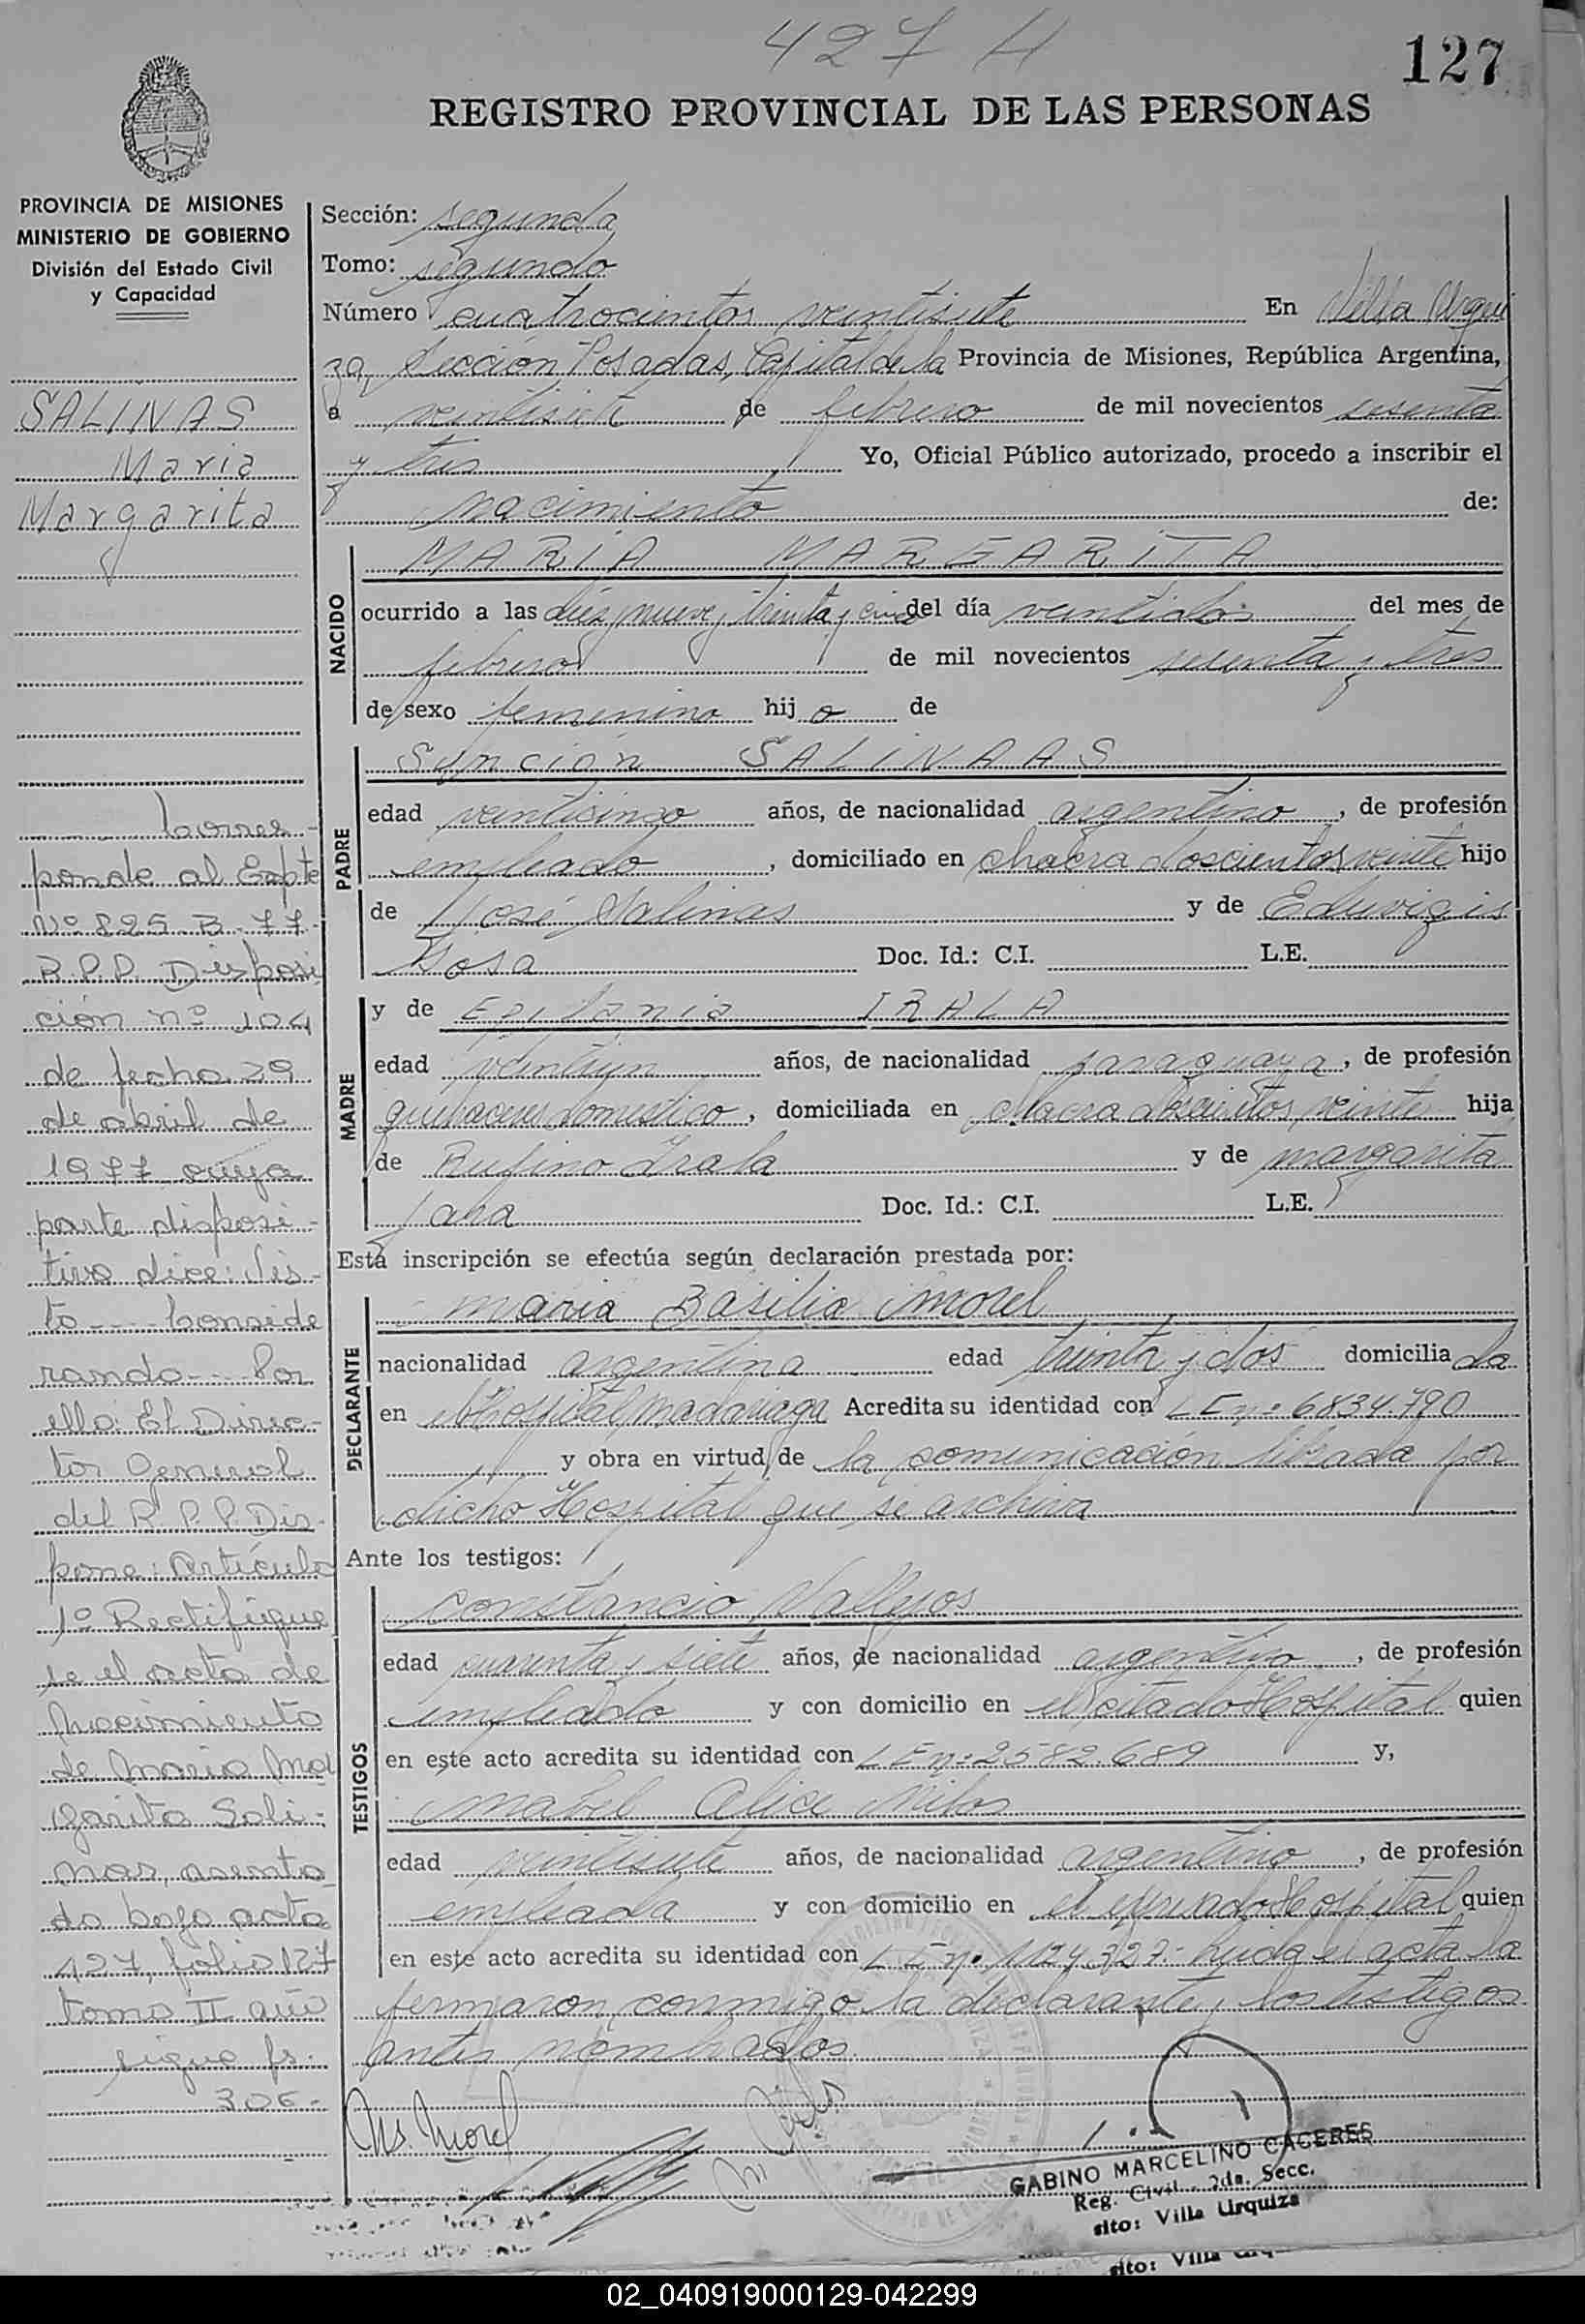 427 H
127
REGISTRO PROVINCIAL DE LAS PERSONAS
PROVINCIA DE MISIONES
MINISTERIO DE GOBIERNO
División del Estado Civil
y Capacidad
SALINAS
Maria
Margarita
Corres-
ponde al Expte
Nº 825-B-77-
R.P.P. Disposi
ción nº 104
de fecha 29
de abril de
1977 cuya
parte disposi-
tiva dice: Vis-
to---- Conside
rando---- Por
ello: El Direc-
tor General
del R.P.P. Dis-
pone: Artículo
1º Rectifíque
se el acta de
Nacimiento
de Maria Mar
garita Sali-
nas, asenta
da bajo acta
427, folio 127
tomo II año
sigue fs.
306-
Sección: segunda
Tomo: segundo
Número cuatrocientos veintisiete En Villa Urqui
za, Sección Posadas, Capital de la Provincia de Misiones, República Argentina,
a veintisiete de febrero de mil novecientos sesenta
y tres Yo, Oficial Público autorizado, procedo a inscribir el
nacimiento de:
NACIDO
MARIA MARGARITA
ocurrido a las diez y nueve y treinta y cinco del día veintidos del mes de
febrero de mil novecientos sesenta y tres
de sexo femenino hij a de
PADRE
Sunción SALINAAS
edad veintisinco años, de nacionalidad argentino, de profesión
empleado, domiciliado en chacra doscientos veinte hijo
de José Salinas y de Eduvigis
Sosa Doc. Id.: C.I. L.E.
MADRE
y de Epifania IRALA
edad veintiun años, de nacionalidad paraguaya, de profesión
quehaceres domestico, domiciliada en chacra doscientos veinte hija
de Rufino Irala y de margarita
Jara Doc. Id.: C.I. L.E.
Esta inscripción se efectúa según declaración prestada por:
DECLARANTE
maria Basilia Morel
nacionalidad argentina edad treinta y dos domicilia da
en el Hospital Madariaga Acredita su identidad con L E nº 6834.790
y obra en virtud de la comunicación librada por
dicho Hospital que se archiva
Ante los testigos:
TESTIGOS
Constancio Vallejos
edad cuarenta y siete años, de nacionalidad argentino, de profesión
empleado y con domicilio en el citado Hospital quien
en este acto acredita su identidad con L E nº 2582.689 y,
Mabel Alice
edad veintisiete años, de nacionalidad argentina, de profesión
empleada y con domicilio en el Hospital quien
en este acto acredita su identidad con L E nº 1124.327.- Leida el acta la
firmaron conmigo la declarante y los testigos
antes nombrados
Ms. Morel
GABINO MARCELINO CACERES
Reg. Civil - 2da. Secc.
sito: Villa Urquiza
02_040919000129-042299